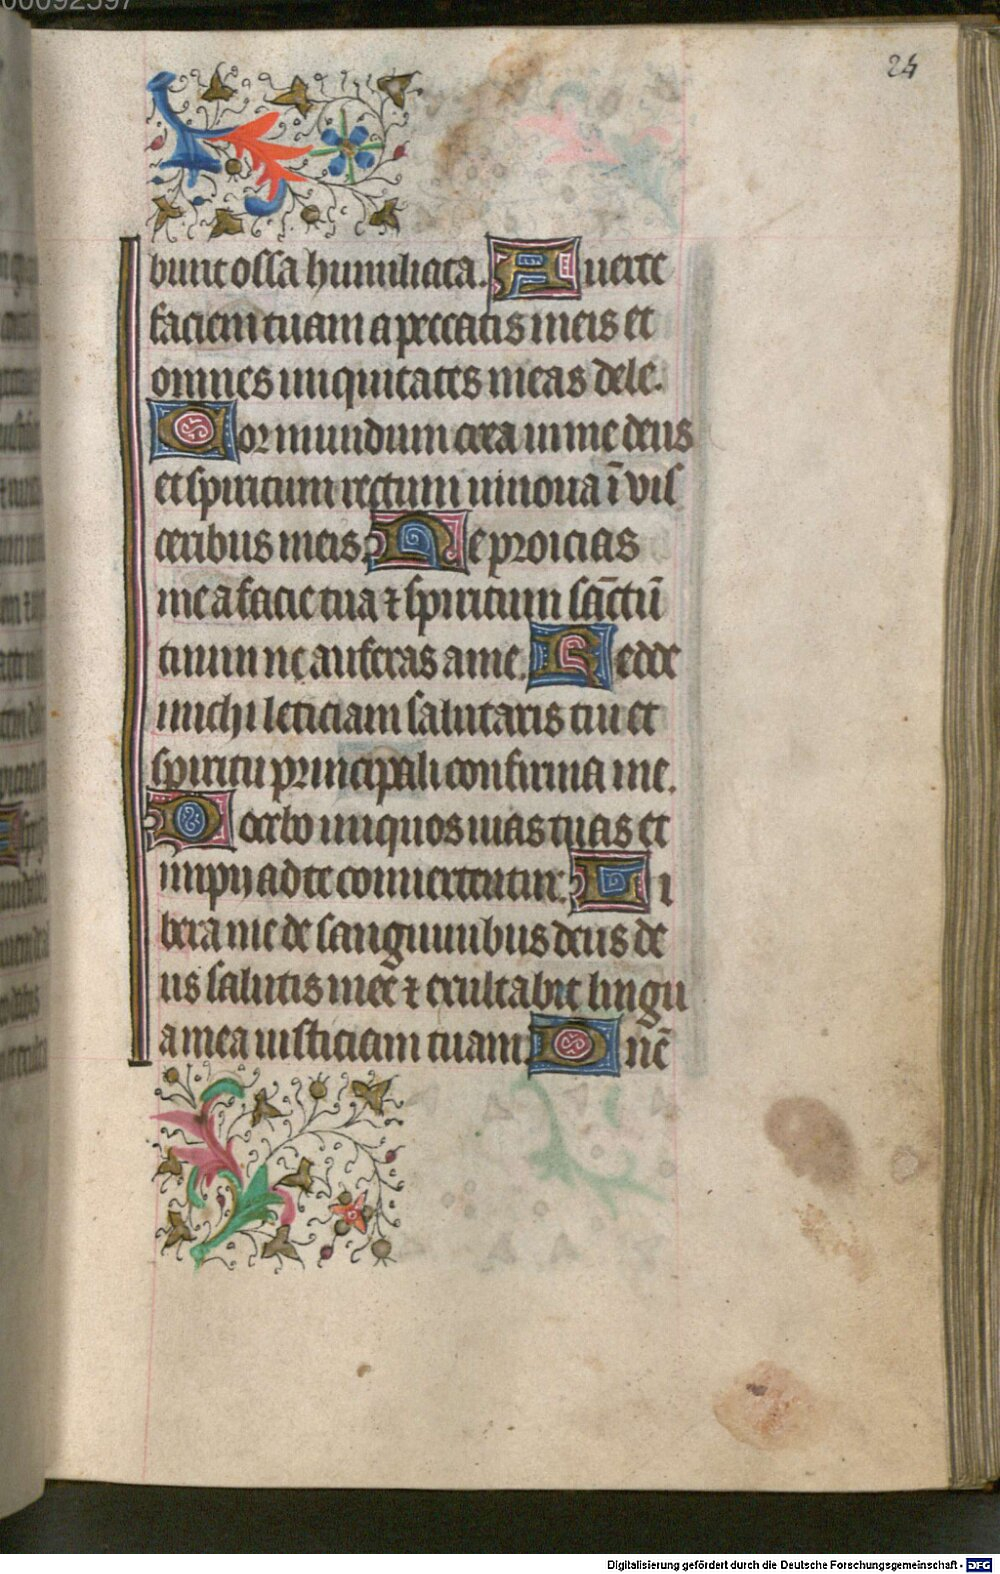 24
bunt ossa humiliata. Auerte
faciem tuam a peccatis meis et
omnes iniquitates meas dele.
Cor mundum crea in me deus
et spiritum rectum innoua ī vis
ceribus meis. Ne proicias
me a facie tua ⁊ spiritum sāctū
tuum ne auferas a me. Redde
michi leticiam salutaris tui et
spiritu principali confirma me.
Docebo iniquos uias tuas et
impij ad te conuertentur. Li
bera me de sanguinibus deus de
us salutis mee ⁊ exultabit lingu
a mea iusticiam tuam. Dnē
Digitalisierung gefördert durch die Deutsche Forschungsgemeinschaft - DFG